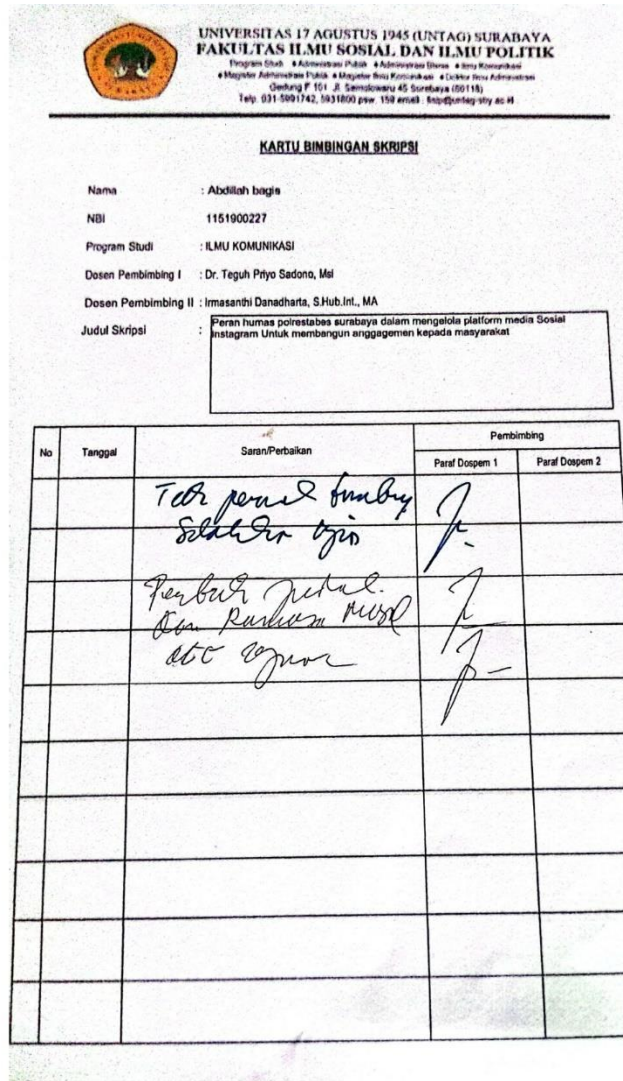 UNIVERSITAS 17 AGUSTUS 1945 (UNTAG) SURABAYA
FAKULTAS ILMU SOSIAL DAN ILMU POLITIK
Program Studi ♦ Administrasi Publik ♦ Administrasi Bisnis ♦ Ilmu Komunikasi
♦ Magister Administrasi Publik ♦ Magister Ilmu Komunikasi ♦ Doktor Ilmu Administrasi
Gedung F 101 Jl. Semolowaru 45 Surabaya (60118)
Telp. 031-5991742, 5931800 psw. 159 email : fisip@untag-sby.ac.id
KARTU BIMBINGAN SKRIPSI
Nama : Abdillah bagis
NBI 1151900227
Program Studi : ILMU KOMUNIKASI
Dosen Pembimbing I : Dr. Teguh Priyo Sadono, Msi
Dosen Pembimbing II : Irmasanthi Danadharta, S.Hub.Int., MA
Judul Skripsi : Peran humas polrestabes surabaya dalam mengelola platform media Sosial
Instagram Untuk membangun anggagemen kepada masyarakat
No Tanggal Saran/Perbaikan Pembimbing
Paraf Dospem 1 Paraf Dospem 2
pernah
Silahkan
judul.
Dan